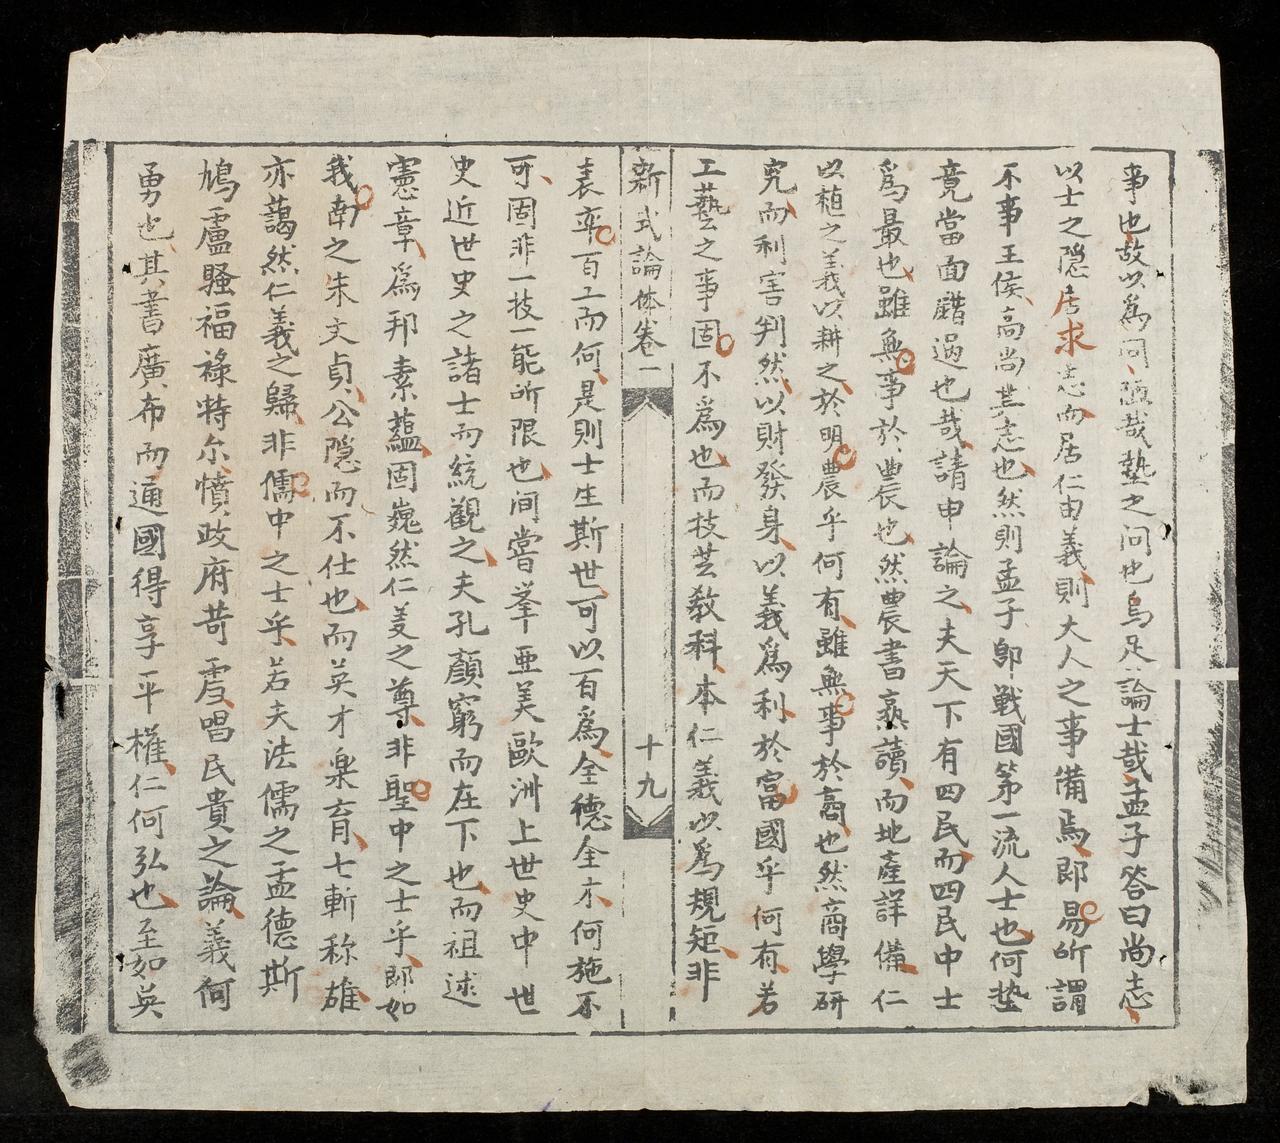 事也故以為問陋哉墊之問也烏足論士哉孟子答曰尚志
以士之隱居求志而居仁由義則大人之事備焉即易所謂
不事王侯高尚其志也然則孟子即戰國第一流人士也何墊
竟當面錯過也哉請申論之夫天下有四民而四民中士
為最也雖無事於農也然農書熟讀而地產詳備仁
以植之義以耕之於明農乎何有雖無事於商也然商學研
究而利害判然以財發身以義為利於富國乎何有若
工藝之事固不為也而技芸教科本仁義以為規矩非
新式論体卷一
十九
表率百工而何是則士生斯世可以百為全德全才何施不
可固非一技一能所限也间嘗举亜美歐洲上世史中世
史近世史之諸士而統觀之夫孔顏窮而在下也而祖述
憲章為邦素蘊固巍然仁義之尊非聖中之士乎即如
我南之朱文貞公隐而不仕也而英才樂育七斬称雄
亦藹然仁義之歸非儒中之士乎若夫法儒之孟德斯
鳩盧騷福祿特尔憤政府苛虐唱民貴之論義何
勇也其書廣布而通國得享平權仁何弘也至如英